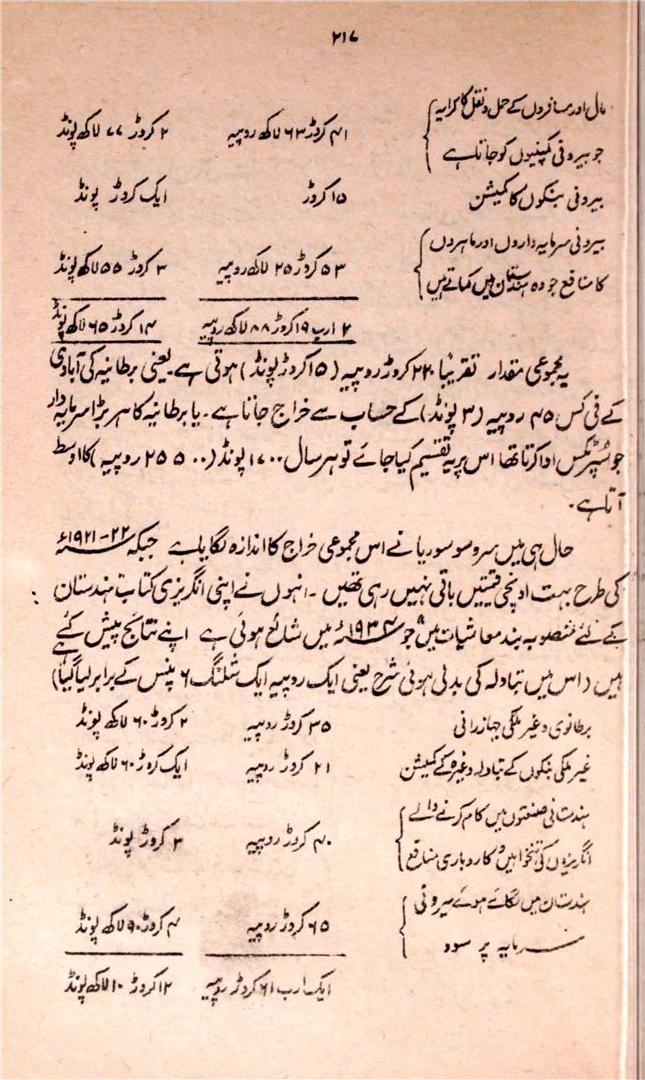 ۲۱۷
مال اور مسافروں کے حمل و نقل کا کرایہ
جو بیرونی کمپنیوں کو جاتا ہے
۴۱ کروڑ ۶۳ لاکھ روپیہ ۲ کروڑ ۷۷ لاکھ پونڈ
بیرونی بنکوں کا کمیشن ۱۵ کروڑ ایک کروڑ پونڈ
بیرونی سرمایہ داروں اور ماہروں
کا منافع جو وہ ہندستان میں کماتے ہیں
۵۳ کروڑ ۲۵ لاکھ روپیہ ۳ کروڑ ۵۵ لاکھ پونڈ
۲ ارب ۱۹ کروڑ ۸۸ لاکھ روپیہ ۱۴ کروڑ ۶۵ لاکھ پونڈ
یہ مجموعی مقدار تقریباً ۲۲۰ کروڑ روپیہ (۱۵ کروڑ پونڈ) ہوتی ہے۔ یعنی برطانیہ کی آبادی
کے فی کس ۴۵ روپیہ (۳ پونڈ) کے حساب سے خراج جاتا ہے۔ یا برطانیہ کا ہر بڑا سرمایہ دار
جو سُپر ٹیکس ادا کرتا تھا اس پر یہ تقسیم کیا جائے تو ہر سال ۱۷۰۰ پونڈ (۲۵۵۰۰ روپیہ) کا اوسط
آتا ہے۔
حال ہی میں سروسوسوریا نے اس مجموعی خراج کا اندازہ لگایا ہے جبکہ ۲۲-۱۹۲۱ء
کی طرح بہت اونچی قیمتیں باقی نہیں رہی تھیں۔ انہوں نے اپنی انگریزی کتاب ہندستان
کے لئے منصوبہ بند معاشیات میں جو ۱۹۳۴ء میں شائع ہوئی ہے اپنے نتائج پیش کئے
ہیں (اس میں تبادلہ کی بدلی ہوئی شرح یعنی ایک روپیہ ایک شلنگ ۶ پنس کے برابر لیا گیا)
برطانوی و غیر ملکی جہازرانی ۳۵ کروڑ روپیہ ۲ کروڑ ۶۰ لاکھ پونڈ
غیر ملکی بنکوں کے تبادلہ وغیرہ کے کمیشن ۲۱ کروڑ روپیہ ایک کروڑ ۶۰ لاکھ پونڈ
ہندستانی صنعتوں میں کام کرنے والے
انگریزوں کی تنخواہیں و کاروباری منافع
۴۰ کروڑ روپیہ ۳ کروڑ پونڈ
ہندستان میں لگائے ہوئے بیرونی
سرمایہ پر سود
۶۵ کروڑ روپیہ ۴ کروڑ ۹۰ لاکھ پونڈ
ایک ارب ۶۱ کروڑ روپیہ ۱۲ کروڑ ۱۰ لاکھ پونڈ